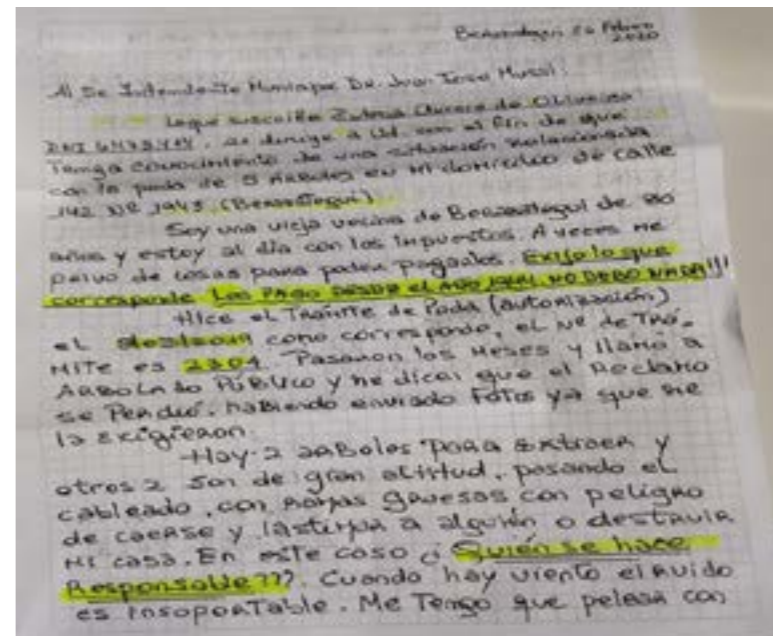 Berazategui 26 Febrero
2020
Al Sr Intendente Municipal Dr. Juan José Mussi:
La que suscribe de
DNI, se dirige a Ud con el fin de que
Tenga conocimiento de una situación relacionada
con la poda de 5 ARboles en Mi domicilio de calle
142 Nº 1943 (Berazategui).
Soy una vieja vecina de Berazategui de 80
años y estoy al día con los impuestos. A veces me
privo de cosas para poder pagarlos. Exijo lo que
corresponde. Los PAGO DESDE el AÑO. NO DEBO NADA!!!
Hice el TRÁMITE de Poda (autorización)
el como corresponde, el Nº de TRÁ-
MITE es 2304. Pasaron los Meses y llamo a
ARBOLADO PÚBLICO y me dicen que el Reclamo
se Perdió, habiendo enviado Fotos ya que me
la exigieron.
Hay 2 aRboles para extraer y
otros 2 son de gran altitud, pasando el
cableado, con Ramas gruesas con peligro
de caerse y lastimar a alguién o destruir
Mi casa. En este caso ¿Quién se hace
Responsable???. Cuando hay viento el Ruido
es insoportable. Me Tengo que pelear con